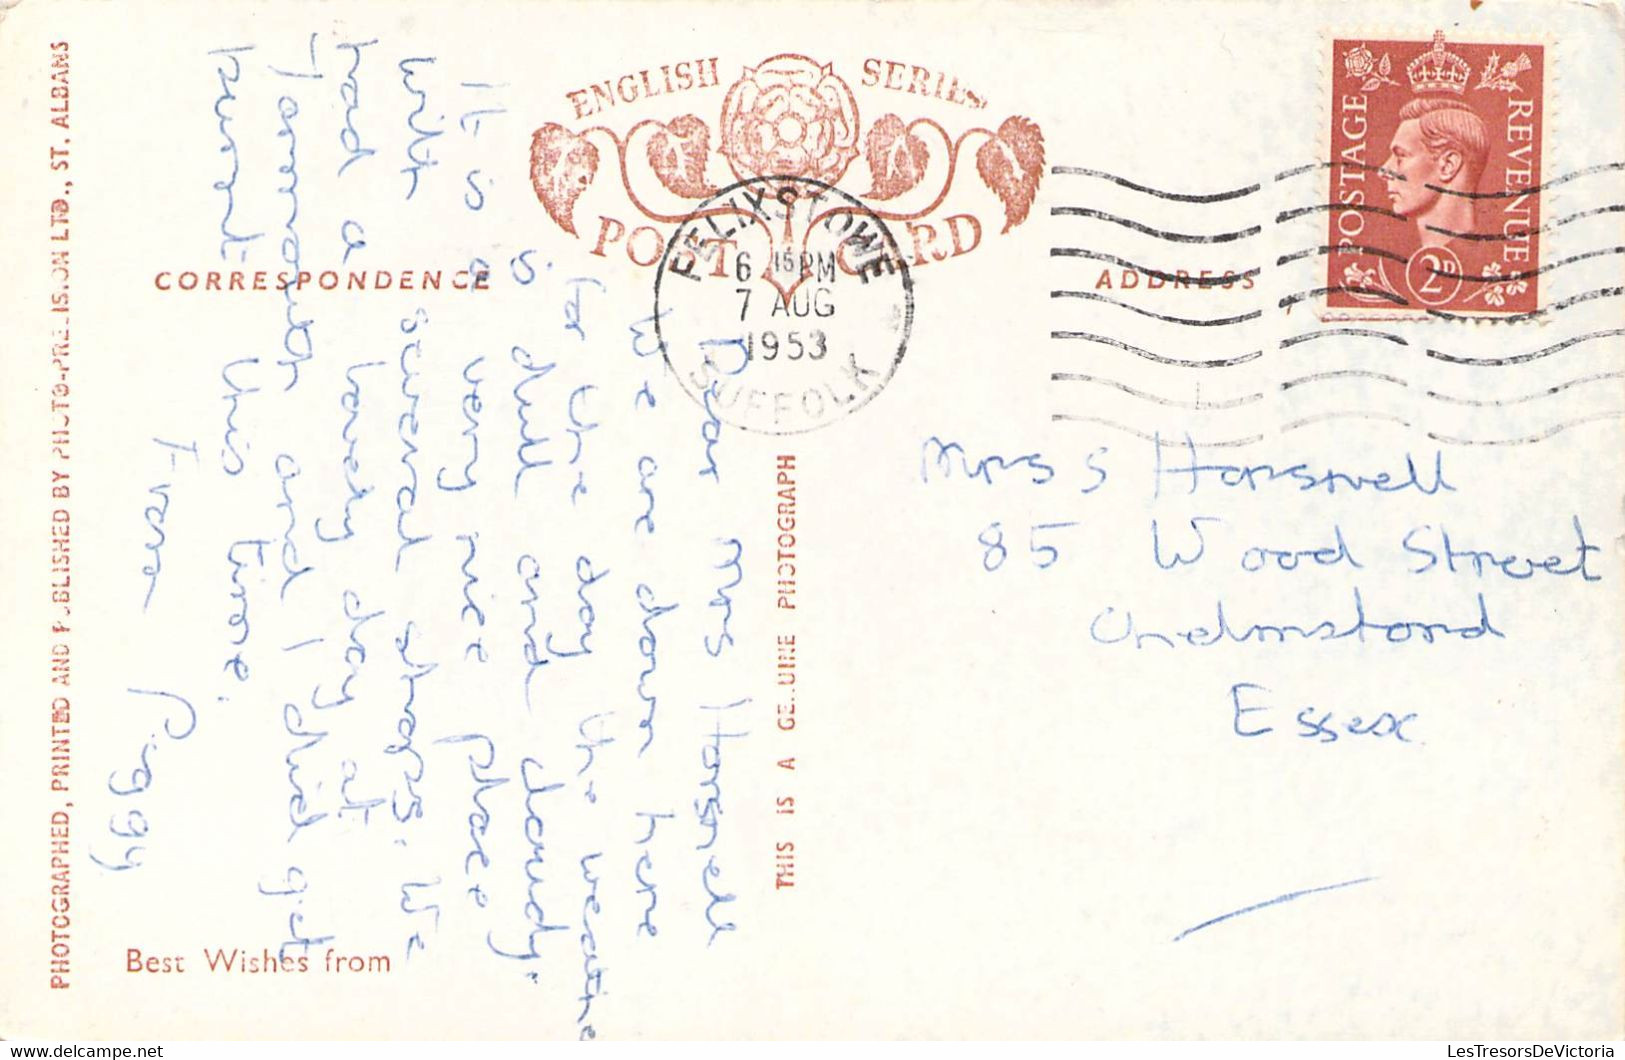 ENGLISH SERIES
POST CARD
CORRESPONDENCE
ADDRESS
POSTAGE REVENUE
2D
FELIXSTOWE
6 15 PM
7 AUG
1953
SUFFOLK
Dear Mrs Horsnell
We are down here
for the day the weather
is dull and cloudy.
It is a very nice place
with several shops. We
had a lovely day at
Yarmouth and I did get
burnt this time.
From Piggy
Mrs S Horsnell
85 Wood Street
Chelmsford
Essex
Best Wishes from
PHOTOGRAPHED, PRINTED AND PUBLISHED BY PHOTO-PRECISION LTD., ST. ALBANS
THIS IS A GENUINE PHOTOGRAPH
LesTresorsDeVictoria